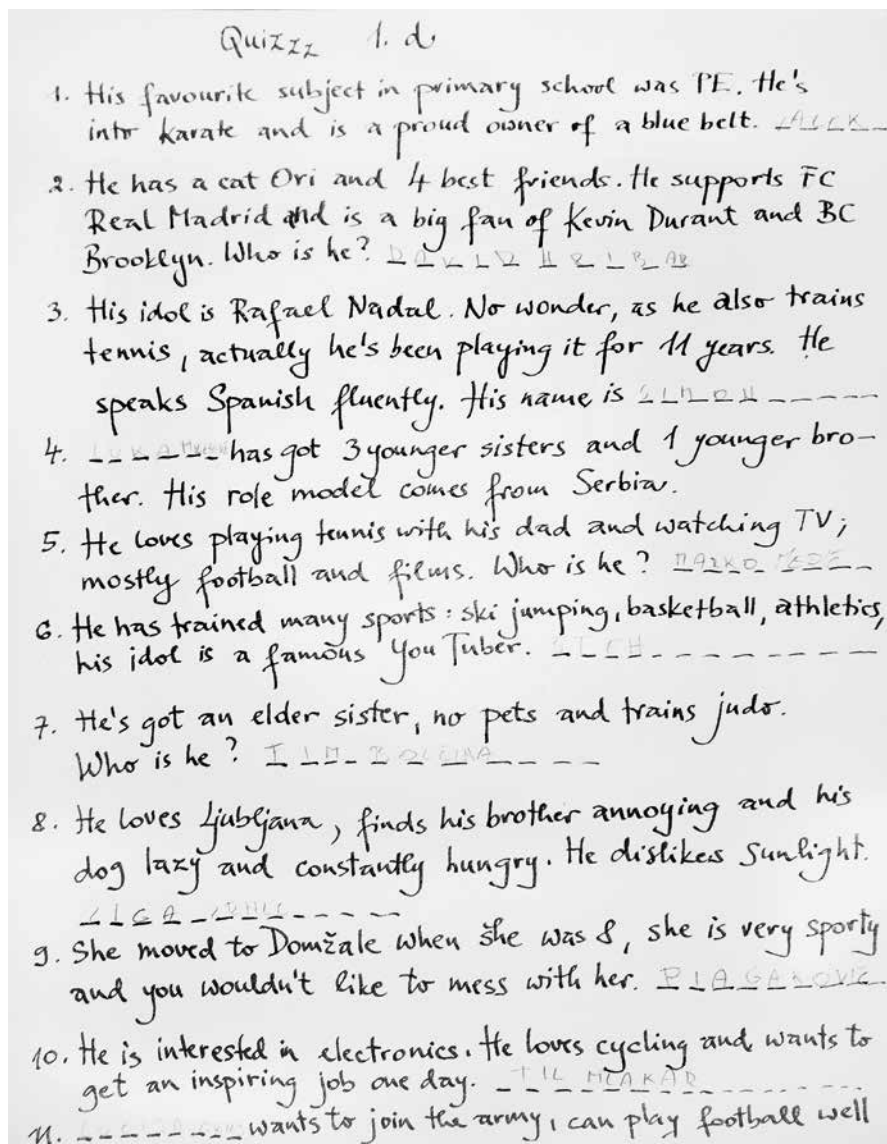 Quizzz 1. d
1. His favourite subject in primary school was PE. He's
into karate and is a proud owner of a blue belt.
2. He has a cat Ori and 4 best friends. He supports FC
Real Madrid and is a big fan of Kevin Durant and BC
Brooklyn. Who is he? DAVID HRIBAR
3. His idol is Rafael Nadal. No wonder, as he also trains
tennis, actually he's been playing it for 11 years. He
speaks Spanish fluently. His name is SIMON
4. LUKA has got 3 younger sisters and 1 younger bro-
ther. His role model comes from Serbia.
5. He loves playing tennis with his dad and watching TV;
mostly football and films. Who is he? MARKO
6. He has trained many sports: ski jumping, basketball, athletics,
his idol is a famous YouTuber.
7. He's got an elder sister, no pets and trains judo.
Who is he? TIM
8. He loves Ljubljana, finds his brother annoying and his
dog lazy and constantly hungry. He dislikes sunlight.
ŽIGA
9. She moved to Domžale when she was 8, she is very sporty
and you wouldn't like to mess with her. PIA
10. He is interested in electronics. He loves cycling and wants to
get an inspiring job one day. TIL MLAKAR
11. wants to join the army, can play football well